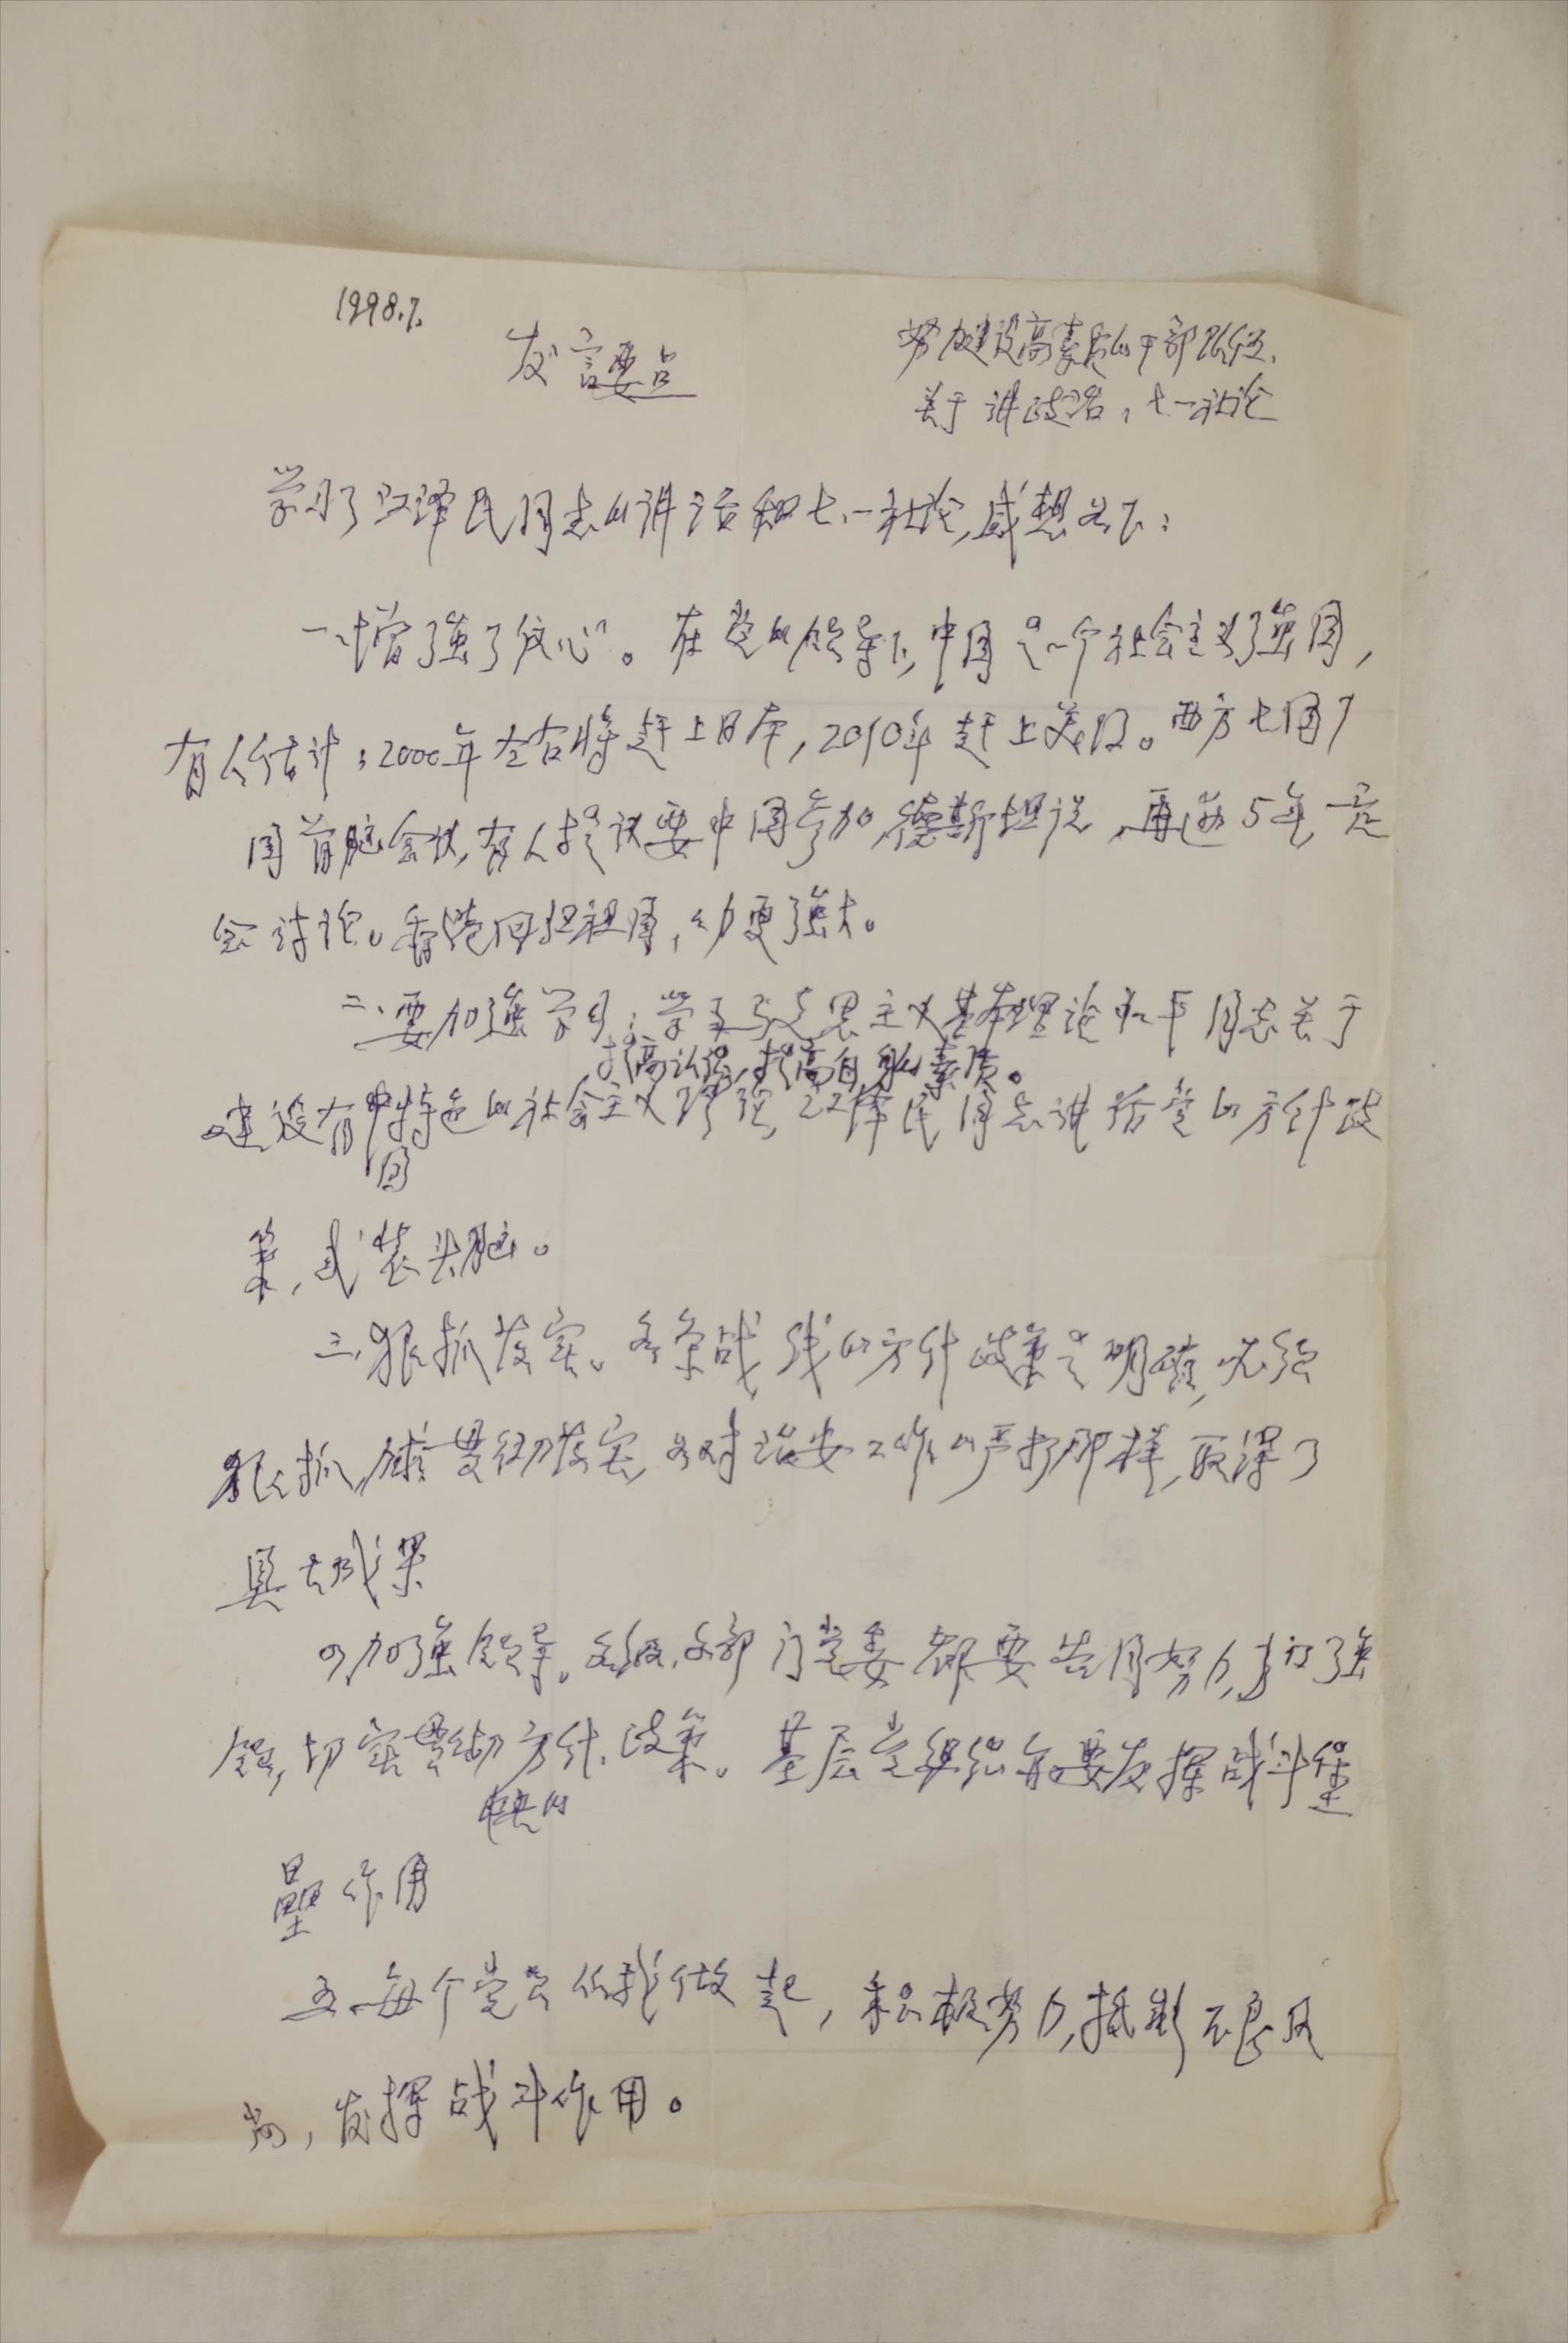 1998.7.
发言要点
努力建设高素质的干部队伍、
关于讲政治，七一社论
学习了江泽民同志的讲话和七·一社论,感想如下：
一、增强了信心。在党的领导下,中国是一个社会主义强国，
有人估计：2000年左右将赶上日本，2010年赶上美国。西方七国
国首脑会议,有人提议要中国参加,德斯坦说,再过5年,一定
会讨论。香港回归祖国,更强大。
二、要加强学习；学习马克思主义基本理论和小平同志关于
提高认识,提高自身的素质。
建设有中特色的社会主义理论,江泽民同志讲话党的方针政
国
策,武装头脑。
三、狠抓落实。各条战线的方针政策是明确,必须
狠抓,贯彻落实,如对治安工作的严打那样,取得了
具大成果
四、加强领导。各级、各部门党委都要共同努力,加强
领导,切实贯彻方针、政策。基层党组织亦要发挥战斗堡
中央的
垒作用
五、每个党员从我做起,积极努力,抵制不良风
尚,发挥战斗作用。